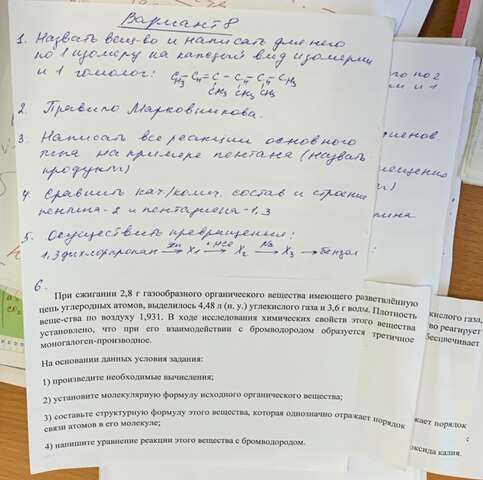 Вариант 8
1. Назвать вещ-во и написать для него
по 1 изомеру на каждый вид изомерии
и 1 гомолог: CH3 – CH = C – CH – CH – CH3
CH3 CH3 CH3
2. Правило Марковникова.
3. Написать все реакции основного
типа на примере пентана (назвать
продукты)
4. Сравнить кач./колич. состав и строение
пентина-2 и пентадиена-1,3
5. Осуществить превращения:
1,3 дихлорпропан Zn→ X1 +HCl→ X2 Na→ X3 → бензол
6.
При сжигании 2,8 г газообразного органического вещества имеющего разветвлённую
цепь углеродных атомов, выделилось 4,48 л (н. у.) углекислого газа и 3,6 г воды. Плотность
веще-ства по воздуху 1,931. В ходе исследования химических свойств этого вещества
установлено, что при его взаимодействии с бромводородом образуется третичное
моногалоген-производное.
На основании данных условия задания:
1) произведите необходимые вычисления;
2) установите молекулярную формулу исходного органического вещества;
3) составьте структурную формулу этого вещества, которая однозначно отражает порядок
связи атомов в его молекуле;
4) напишите уравнение реакции этого вещества с бромводородом.
го по 2
и 1
енов
ещению
пина
кислого газа,
во реагирует
бесцвечивает
жает порядок
оксида калия.